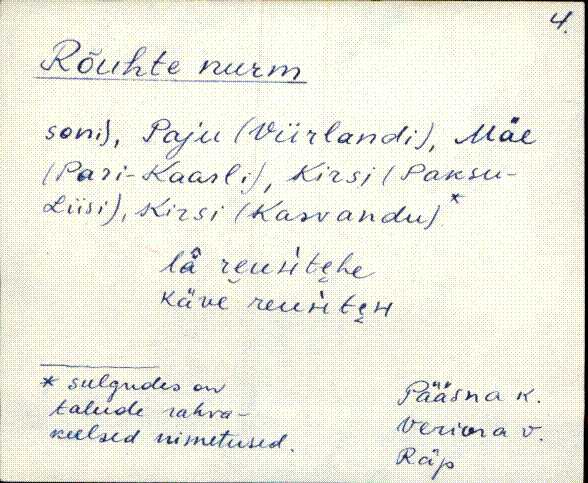 4.
Rõuhte nurm
soni), Paju (Viirlandi), Mäe
(Pari-Kaarli), Kirsi (Paksu-
Liisi), Kirsi (Kasvandu)*
lä
käve
* sulgudes on
talude rahva-
keelsed nimetused.
Pääsna k.
Veriora v.
Räp